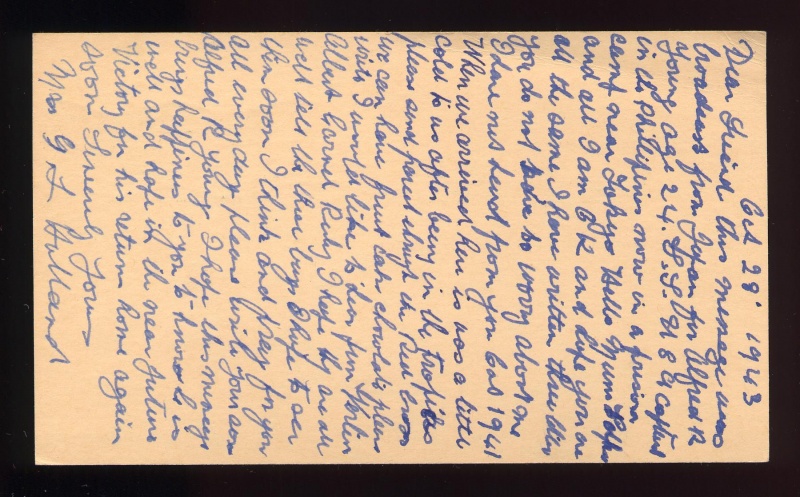 Oct 29' 1943
Dear Friend this message was
broadcast from Japan for Alfred R
Young age 24. captured
in the Philipines now in a prison
camp near Tokyo Hello Mum & Pop
and all I am OK and hope you are
all the same I have written three times
you do not have to worry about me
I have not heard from you Oct 1941
When we arrived here it was a little
cold to us after being in the tropicks
please send food through the Red Cross
we can have fruit cake chocolate please
write I would like to hear from
Albert I hope they are all
well tell the three boys I hope to see
them soon I think and pray for you
all every day please write your son
Alfred R Young I hope this message
brings happiness to you to know he is
well and hope it in near future
Victory for his return home again
soon Sincerely Yours
Mrs G L Holland